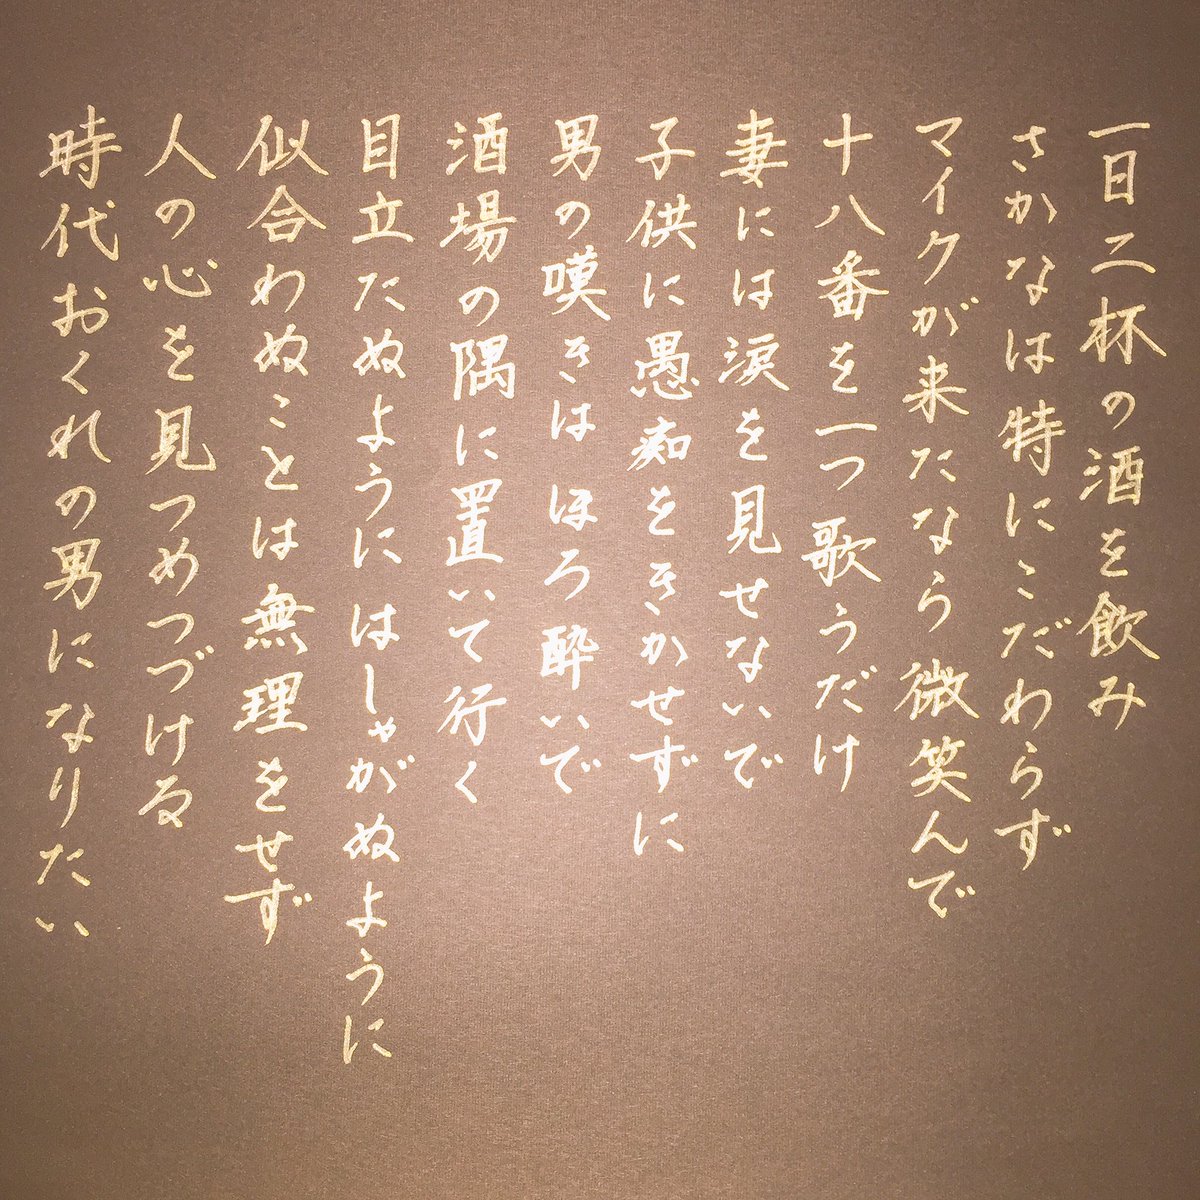 一日二杯の酒を飲み
さかなは特にこだわらず
マイクが来たなら微笑んで
十八番を一つ歌うだけ
妻には涙を見せないで
子供に愚痴をきかせずに
男の嘆きはほろ酔いで
酒場の隅に置いて行く
目立たぬようにはしゃがぬように
似合わぬことは無理をせず
人の心を見つめつづける
時代おくれの男になりたい